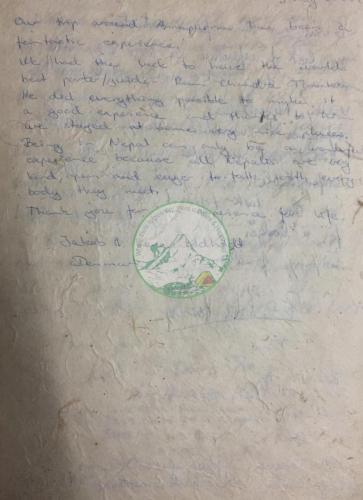 Our trip around Annapurna has been a
fantastic experience.
We had the luck to have the worlds
best porter/guide. Ram Chandra
He did everything possible to make it
a good experience and thanks to him
we stayed at some very nice places.
Being in Nepal can only be a
experience because all Nepales are very
kind, open and eager to talk with every
body they meet.
Thank you for experience for life.
Jakob
Denmark